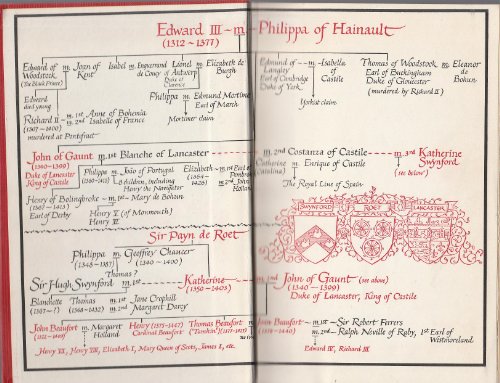 Edward III — m — Philippa of Hainault
(1312 ~ 1377)
Edward of Woodstock, (The Black Prince) m. Joan of Kent
Isabel m. Enguerrand de Coucy
Lionel of Antwerp Duke of Clarence m. Elizabeth de Burgh
Edmund of Langley Earl of Cambridge Duke of York m. Isabella of Castile
Thomas of Woodstock Earl of Buckingham Duke of Gloucester (murdered by Richard II) m. Eleanor de Bohun
Edward died young
Philippa m. Edmund Mortimer Earl of March
Yorkist claim
Richard II (1367 ~ 1400) m. 1st Anne of Bohemia
m. 2nd Isabelle of France
murdered at Pontefract
Mortimer claim
John of Gaunt (1340 ~ 1399) Duke of Lancaster King of Castile m. 1st Blanche of Lancaster
m. 2nd Costanza of Castile
m. 3rd Katherine Swynford (see below)
Philippa m. João of Portugal
8 children, including Henry the Navigator
Elizabeth
Catherine m. Enrique of Castile
The Royal Line of Spain
Henry of Bolingbroke (1367 ~ 1413) Earl of Derby Henry IV m. 1st Mary de Bohun
Henry V (of Monmouth)
Henry VI
SWYNFORD ROET LANCASTER
Sir Payn de Roet
Philippa m. Geoffrey Chaucer
(1340 ~ 1400)
Thomas?
Sir Hugh Swynford m. 1st Katherine (1350 ~ 1403) m. 2nd John of Gaunt (see above)
(1340 ~ 1399)
Duke of Lancaster, King of Castile
Blanchette (1367 ~ ?)
Thomas (1368 ~ 1432) m. 1st Jane Crophill
m. 2nd Margaret Darcy
John Beaufort m. Margaret Holland
Henry (1375 ~ 1447) Cardinal Beaufort
Thomas Beaufort
Joan Beaufort m. 1st Sir Robert Ferrers
m. 2nd Ralph Neville of Raby, 1st Earl of Westmoreland
Henry VII, Henry VIII, Elizabeth I, Mary Queen of Scots, James I, etc.
Edward IV, Richard III